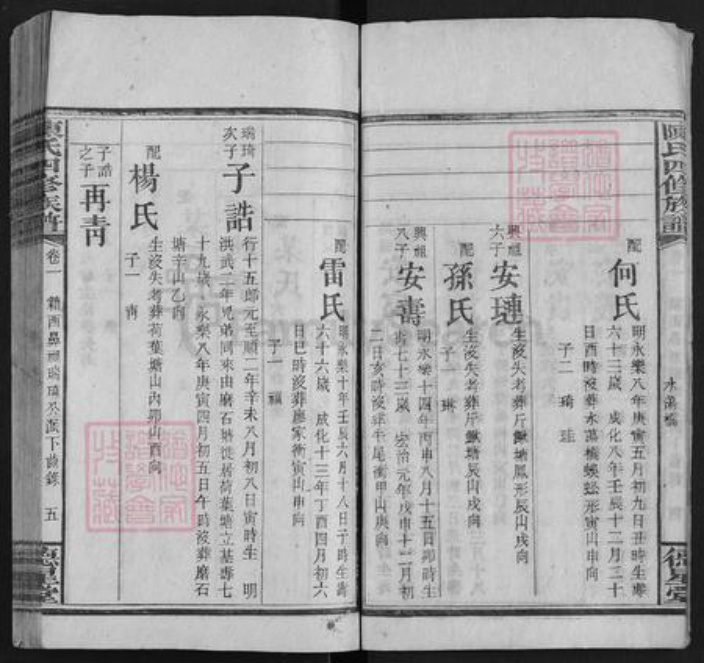 陳氏四修族譜
德星堂
配
何氏
明永樂八年庚寅五月初九日丑時生壽
六十三歲 成化八年壬辰十二月二十
日酉時沒葬永蕩橋蜈蚣形寅山申向
子二 琦 珪
興祖
六子
安璉
生沒失考葬斤鏉塘鳳形辰山戌向
配
孫氏
生沒失考葬斤鏉塘辰山戌向
子一 琳
興祖
八子
安壽
明永樂十四年丙申八月十五日卯時生
壽七十三歲 宏治元年戊申十二月初
二日亥時沒葬牛尾衝甲山庚向
配
雷氏
明永樂十年壬辰六月十八日子時生壽
六十六歲 成化十三年丁酉四月初六
日巳時沒葬廖家衝寅山申向
子一
瑞琦
次子
子誥
行十五郎元至順二年辛未八月初八日寅時生 明
洪武二年兄弟同來由磨石塘徙居荷葉塘立基壽七
十九歲 永樂八年庚寅四月初五日午時沒葬磨石
塘辛山乙向
配
楊氏
生沒失考葬荷葉塘山內卯山酉向
子一 靑
子誥
之子
再靑
陳氏四修族譜
卷一
五
德星堂